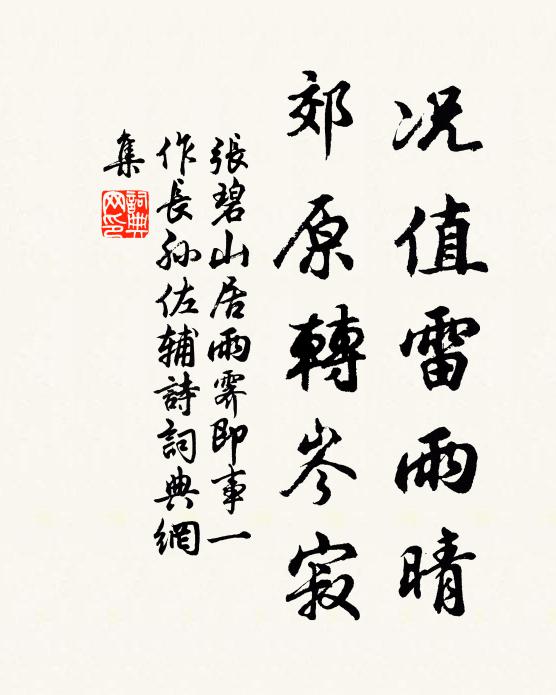 况值雷雨晴
郊原轉岑寂
張碧山居雨霽即事一
作長孙佐辅詩詞典網
集
詞典
网印